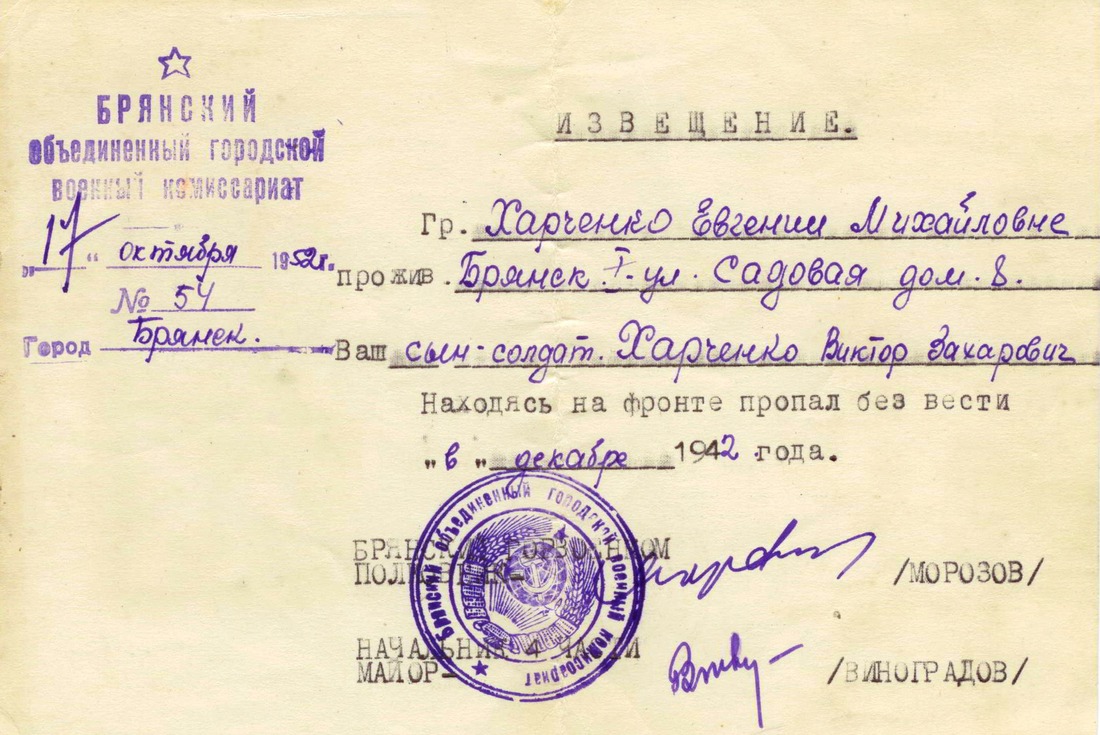 БРЯНСКИЙ
объединенный городской
военный комиссариат
„17“ октября 1952г.
№ 54
Город Брянск.
ИЗВЕЩЕНИЕ.
Гр. Харченко Евгении Михайловне
прожив. Брянск I-ул. Садовая дом. 8.
Ваш сын-солдат. Харченко Виктор Захарович
Находясь на фронте пропал без вести
„в„ декабре 1942 года.
БРЯНСКИЙ ГОРВОЕНКОМ
ПОЛКОВНИК- /МОРОЗОВ/
НАЧАЛЬНИК 4 ЧАСТИ
МАЙОР- /ВИНОГРАДОВ/
Брянский объединенный городской военный комиссариат